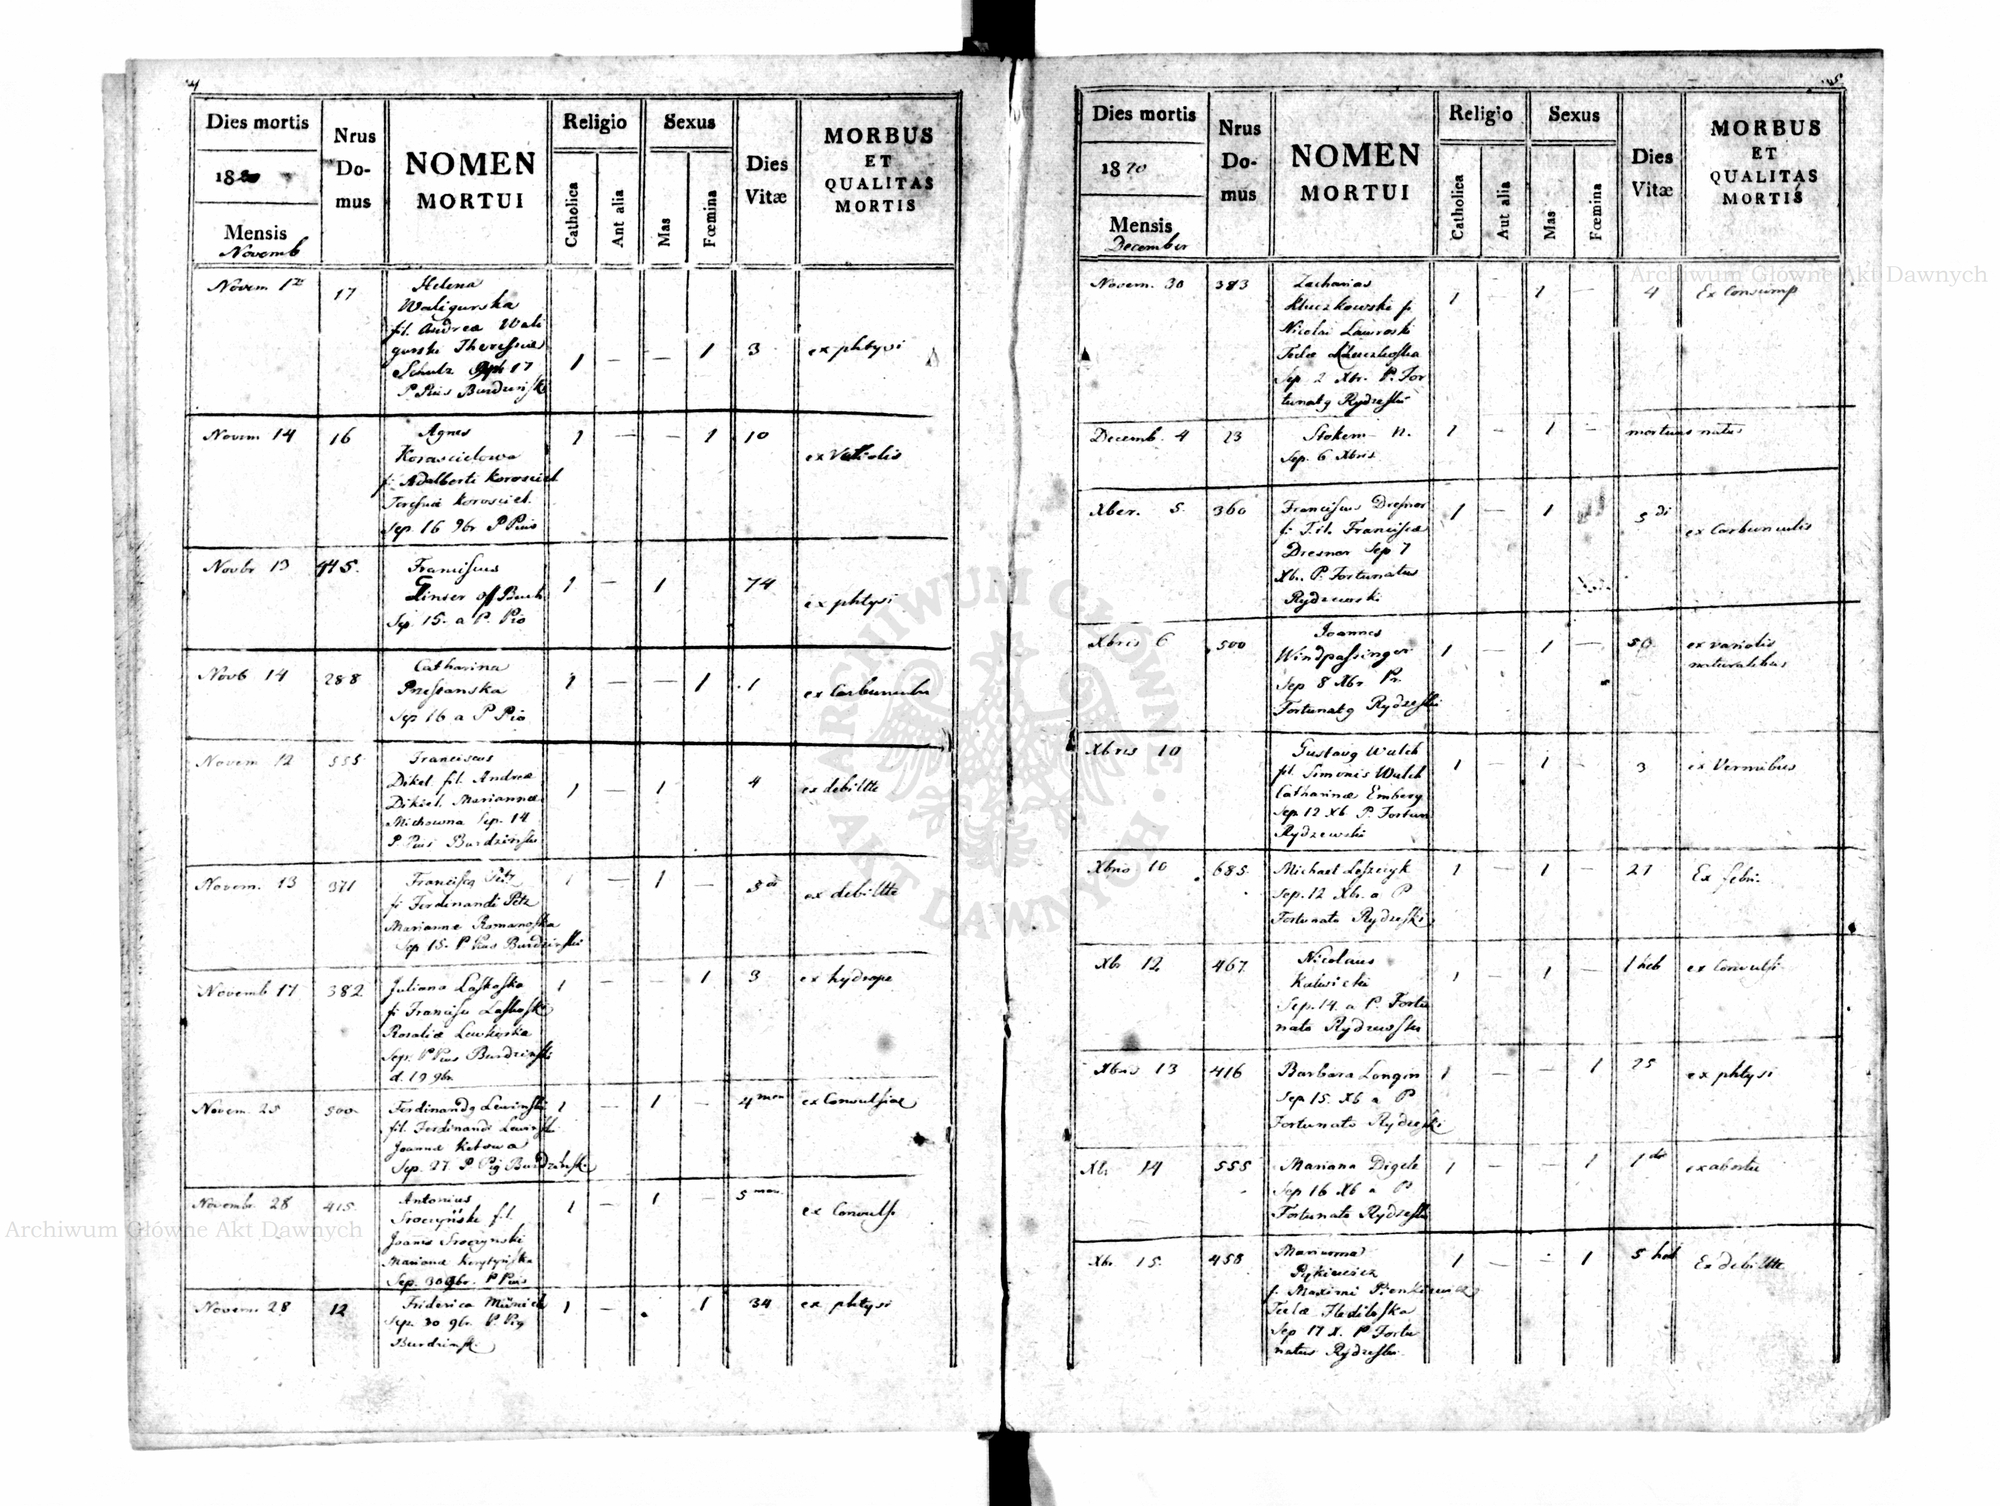 4
Dies mortis
1820
Mensis
Novemb
Nrus
Do-
mus
NOMEN
MORTUI
Religio
Catholica
Ant alia
Sexus
Mas
Fœmina
Dies
Vitæ
MORBUS
ET
QUALITAS
MORTIS
Novem 12 17 Helena
Waligurska
fil. Andrea Wali
gurski Theressiae
Schulz 17
P. Pius Burdzinski
1 — — 1 3 ex phtysi
Novem 14 16 Agnes 1 — — 1 10
ex Variolis
fi Adalberti Korosciel
Teressiae Korosciel.
Sep. 16 9br P Pius
Novbr 13 445. Franciscus
1 — 1 74
Sep. 15. a P. Pio
ex phtysi
Novb 14 288 Catharina
Pressanska 1 — — 1 1 ex Carbunculis
Sep 16 a P Pio
Novem 12 555 Franciscus
Dikel fil. Andreae
Dikiel Marianna
Michowna Sep. 14
P. Pius Burdzinski
1 — 1 4 ex debilitte
Novem. 13 371 Franciscq Petz
fi Ferdinandi Petz
Marianna Romanoska
Sep 15. P Pius Burdzinski
1 — 1 — 5 di ex debilitte
Novemb 17 382 Juliana Laskoska
fi Francisci Laskoski
Rosalia Lewkoska
Sep. P Pius Burdzinski
d. 19 9br
1 — — 1 3 ex hydrope
Novem. 25 500 Ferdinandq Lewinski
fil. Ferdinandi Lewinski
Joanna Kotowa
Sep. 27. P. Pig Burdzinski
1 — 1 — 4 men ex Convulsiae
Novembr 28 415. Antonius
Sroczynski fil.
Joannis Sroczynski
Mariana
Sep. 30 9br. P Pius
1 — 1 — 5 men ex Convulsi
Novem. 28 12 Friderica Münich
Sep. 30 9br. P. Pig
Burdzinski
1 — 1 34 ex phtysi
5
Dies mortis
1820
Mensis
December
Nrus
Do-
mus
NOMEN
MORTUI
Religio
Catholica
Aut alia
Sexus
Mas
Fœmina
Dies
Vitæ
MORBUS
ET
QUALITAS
MORTIS
Novem. 30 383 Zacharias
Kluczkowski fi
Nicolai Lawroski
Tecla Kluczkoska
Sep. 2 Xbr. P. For
tunatq Rydzeski
1 — 1 — 4 Ex Consump
Decemb. 4 23 Stokem N.
Sep. 6 Xbris
1 — 1 — mortuus natus
Xber. 5. 360 Franciscus Dresner
Dresner Sep 7
Xbr. P. Fortunatus
Rydzewski
1 — 1 5 di ex Carbunculis
Xbris 6 500 Joannes
Windpassinger
Sep 8 Xbr Pr.
Fortunatq Rydzeski
1 — 1 — 50 ex variolis
naturalibus
Xbris 10 Gustavq Walch
fil. Simonis Walch
Catharinae Emberg
Sep. 12 Xb P. Fortun
Rydzewski
1 — 1 — 3 ex Vermibus
Xbris 10 685. Michael Leszczyk
Sep. 12 Xbr. a P
Fortunato Rydzeski
1 — 1 — 21 Ex febri.
Xbr 12 467. Nicolaus
Kulwicki
Sep. 14. a P. Fortu
nato Rydzewski
1 — 1 — 1 heb ex Convulsi
Xbris 13 416 Barbara Longin
Sep 15. Xb a P
Fortunato Rydzeski
1 — — 1 25 ex phtysi
Xbr 14 555 Mariana Digele
Sep 16 Xb a P.
Fortunato Rydzeski
1 — — 1 1 di ex abortu
Xbr. 15. 458 Marianna
Pękiewicz
f. Maximi Pienkiewicz
Sep 17 X. P Fortu
natus Rydzeski
1 — 1 5 heb Ex debilitte
Archiwum Główne Akt Dawnych
Archiwum Główne Akt Dawnych
ARCHIWUM GŁÓWNE AKT DAWNYCH